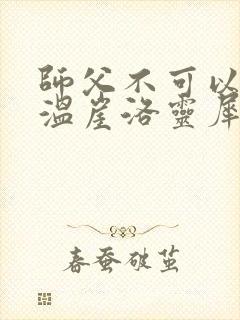 師父不可以
溫崖洛靈犀
春蚕破茧